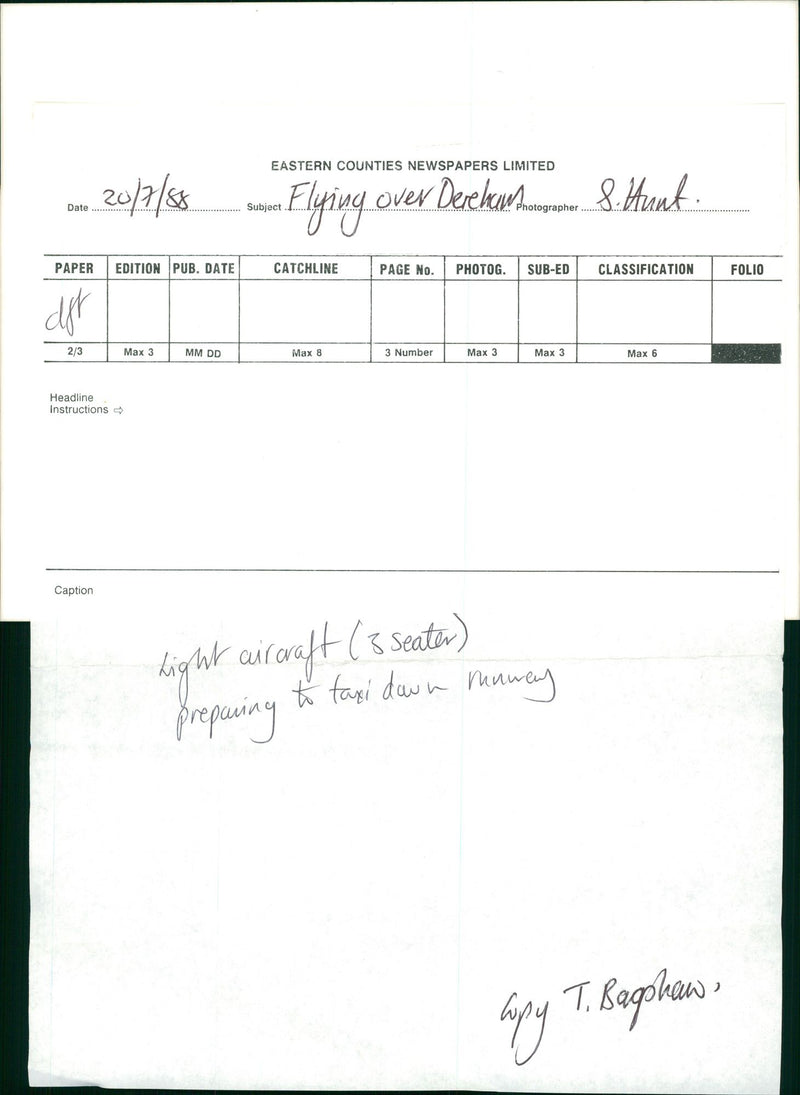 EASTERN COUNTIES NEWSPAPERS LIMITED
Date 20/7/88 Subject Flying over Dereham Photographer S. Hunt.
PAPER EDITION PUB. DATE CATCHLINE PAGE No. PHOTOG. SUB-ED CLASSIFICATION FOLIO
dft
2/3 Max 3 MM DD Max 8 3 Number Max 3 Max 3 Max 6
Headline
Instructions ⇨
Caption
Light aircraft (3 seater)
preparing to taxi down runway
Copy T. Bagshaw.